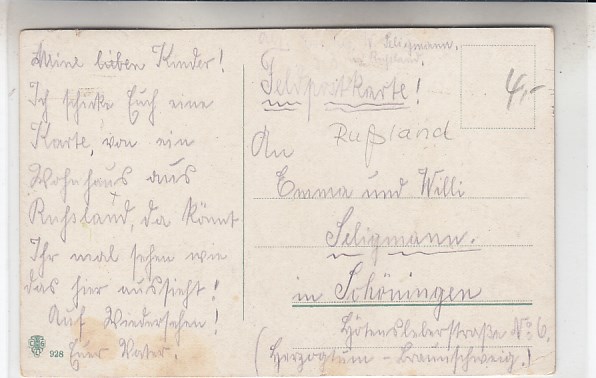 Meine lieben Kinder!
Ich schicke Euch eine
Karte, von ein
Wohnhaus aus
Rußland, da könnt
Ihr mal sehen wie
das hier aussieht!
Auf Wiedersehen!
Euer Vater.
928
Seligmann,
Rußland.
Feldpostkarte!
4,-
Rußland
An
Emma und Willi
Seligmann.
in Schöningen
Hötensleberstraße No 6.
(Herzogtum - Braunschweig.)